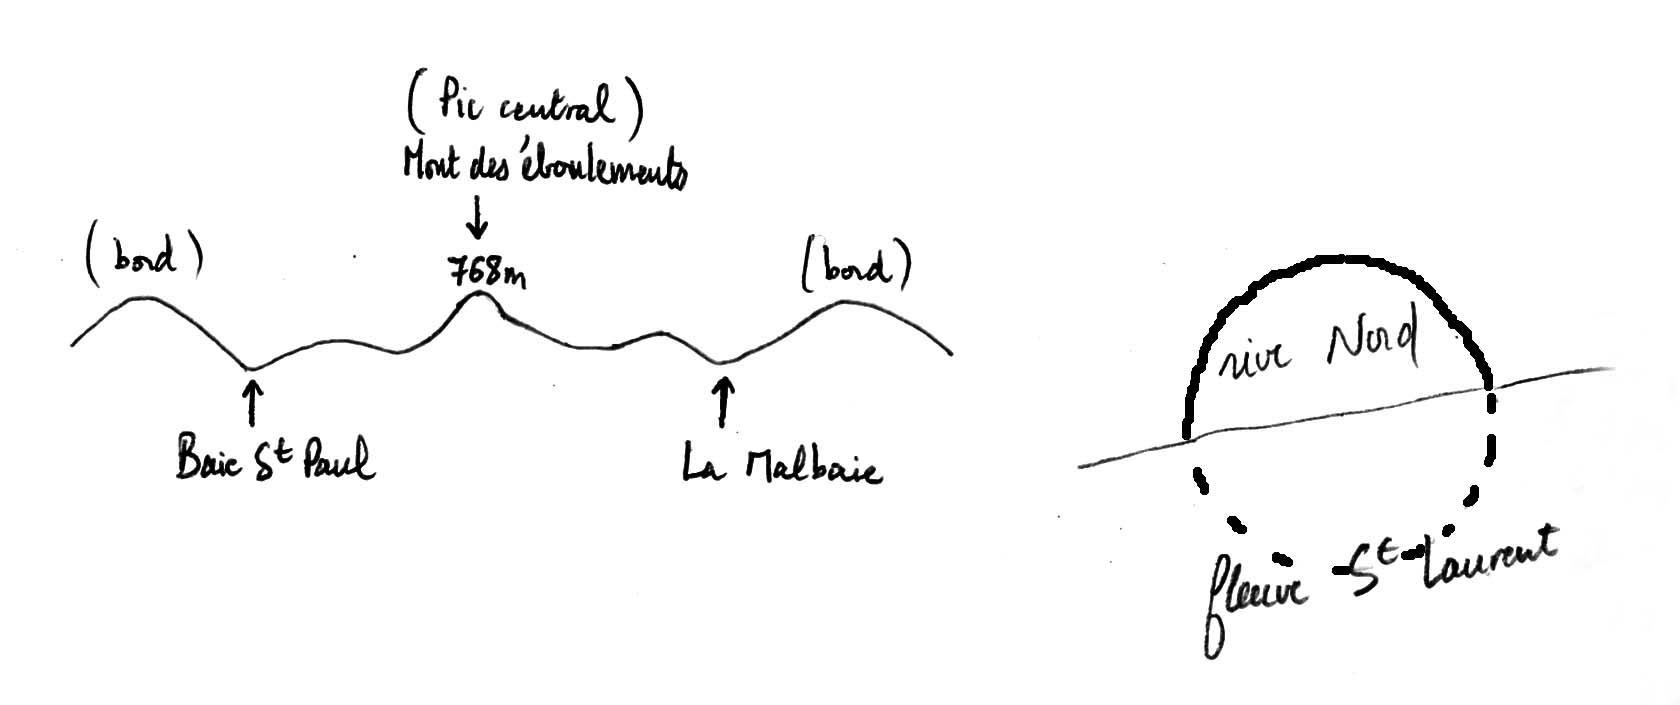 (Pic central)
Mont des éboulements
(bord)
768m
(bord)
Baie St Paul
La Malbaie
rive Nord
fleuve St Laurent